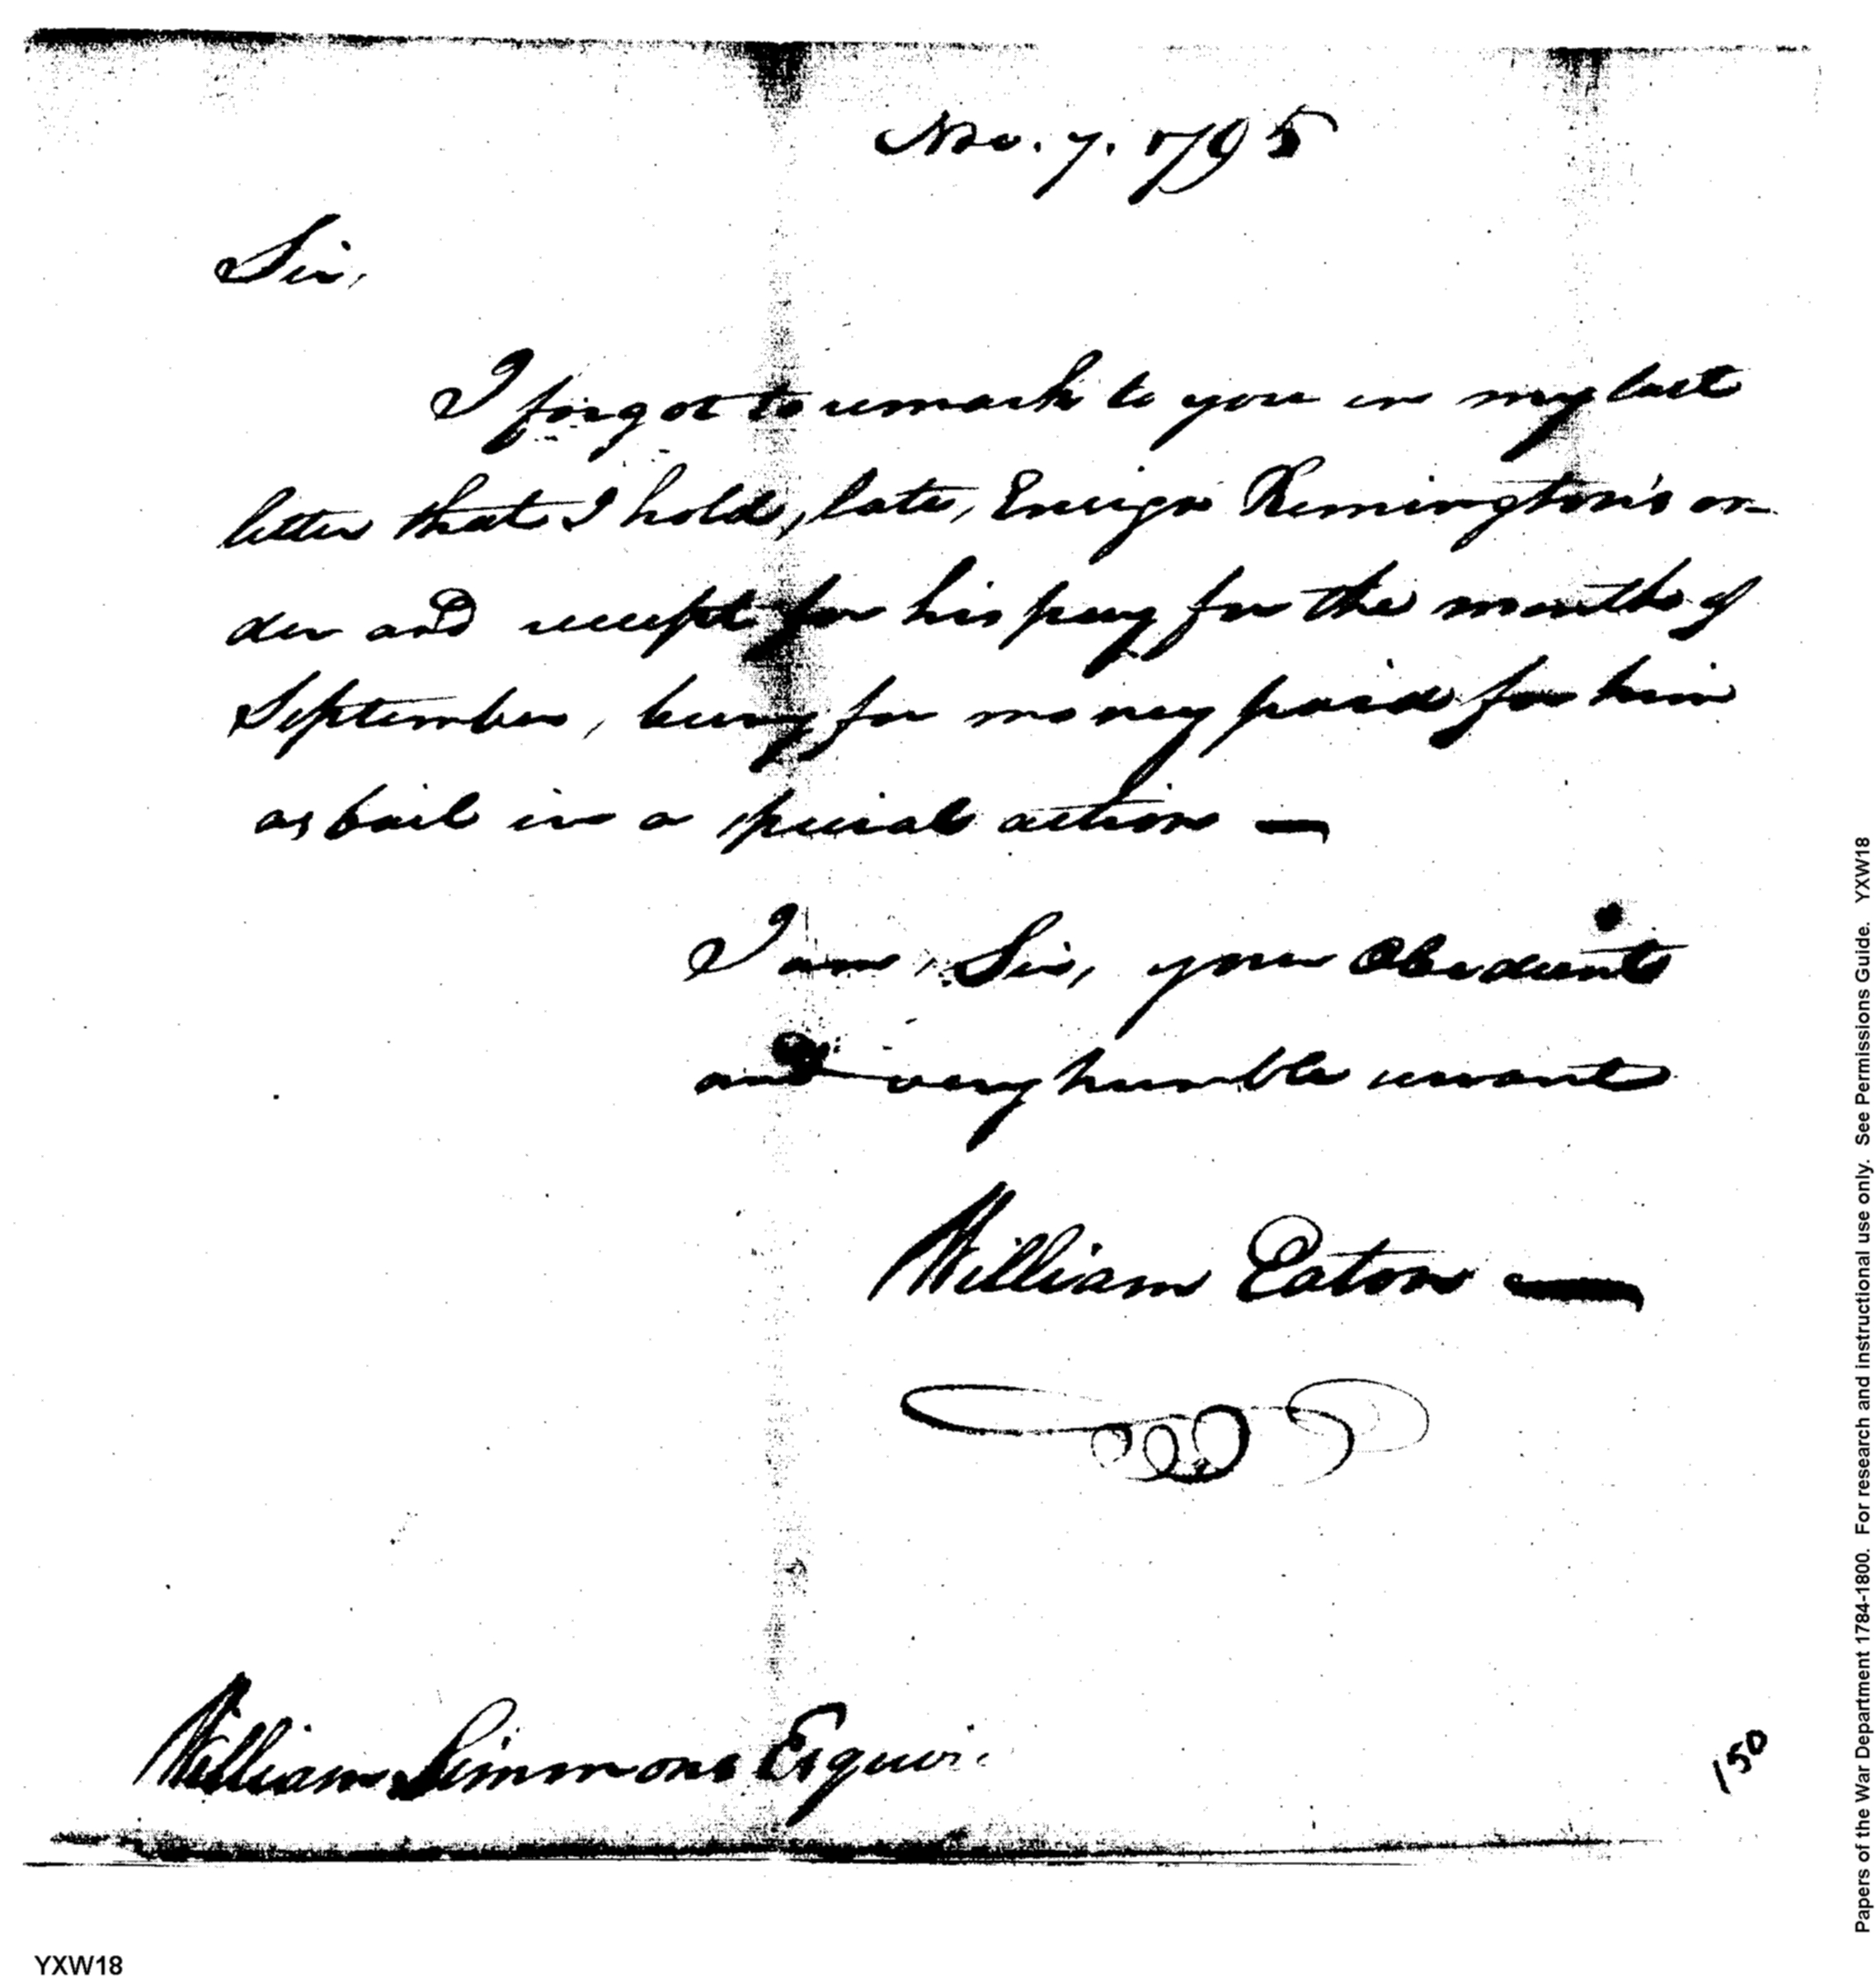 Nov. 7. 1795
Sir,
I forgot to remark to you in my last
letter that I hold, late, Ensign Remington's or-
der and receipt for his pay for the month of
September, being for money paid for him
as bail in a special action —
I am, Sir, your Obedient
and very humble servant
William Eaton —
William Simmons Esquire
150
YXW18
Papers of the War Department 1784-1800. For research and instructional use only. See Permissions Guide. YXW18